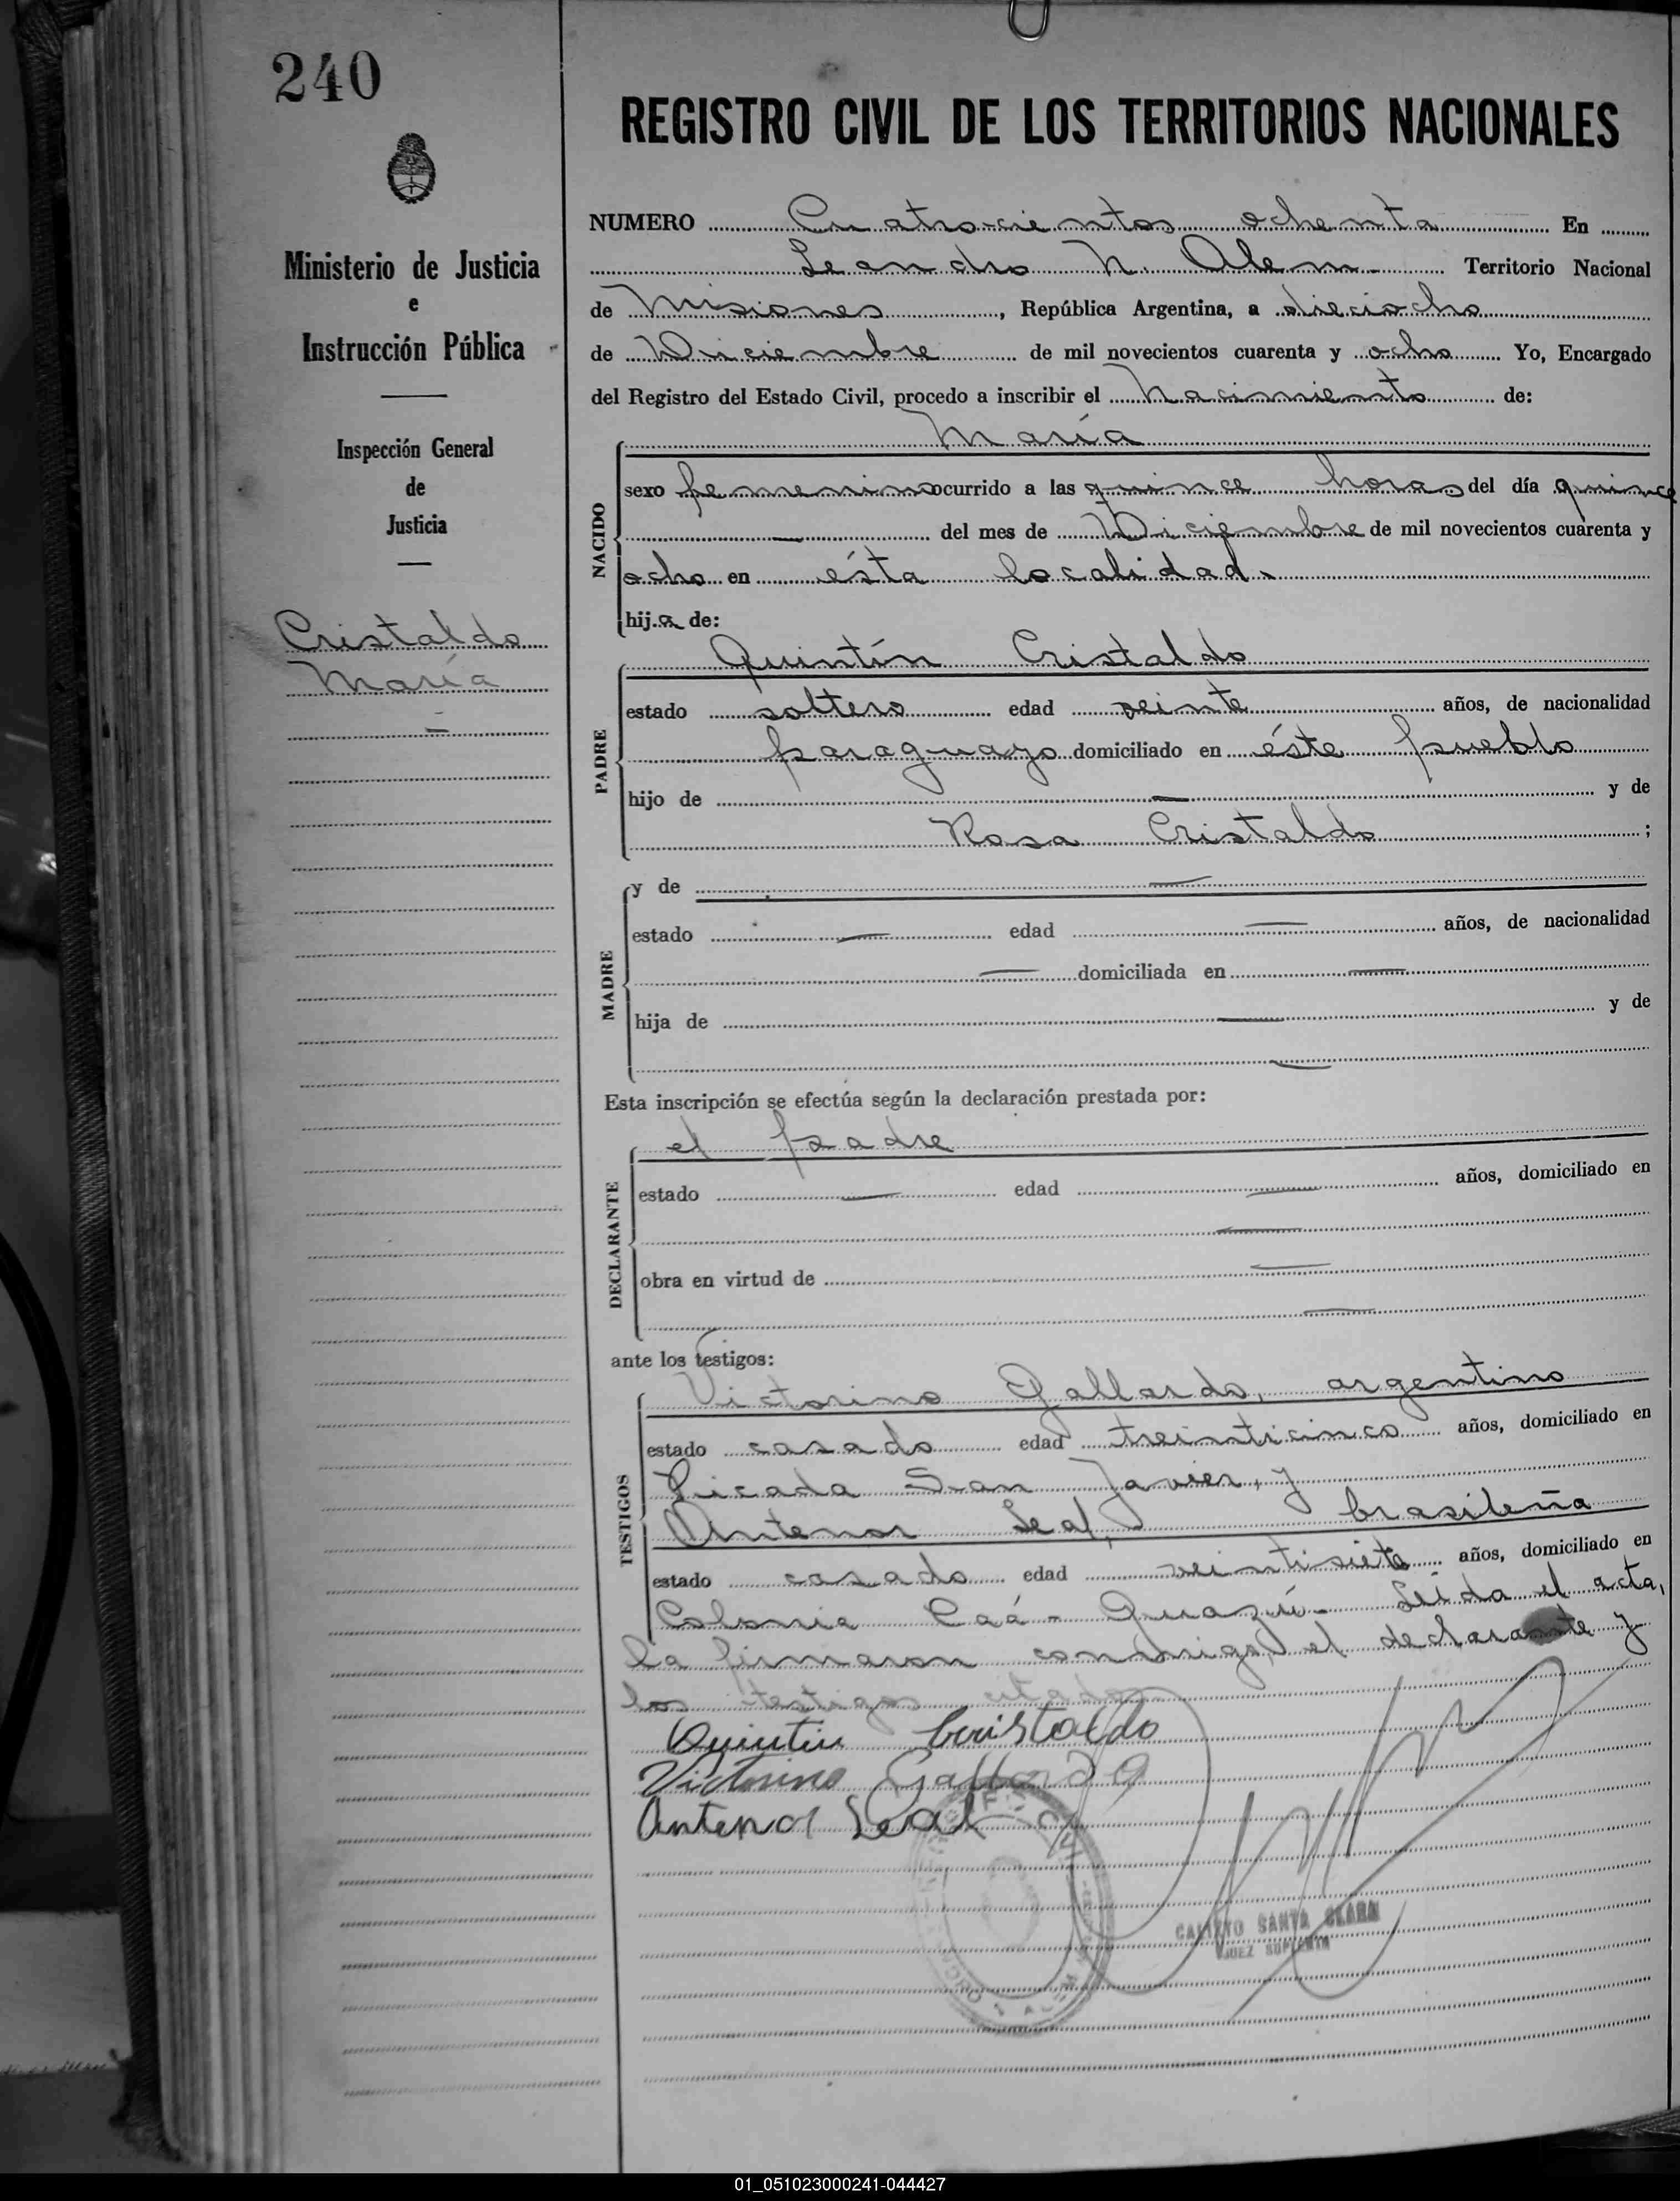 240
REGISTRO CIVIL DE LOS TERRITORIOS NACIONALES
Ministerio de Justicia
e
Instrucción Pública
Inspección General
de
Justicia
Cristaldo
María
NUMERO Cuatrocientos ochenta En
Leandro N. Alem Territorio Nacional
de Misiones, República Argentina, a dieciocho
de Diciembre de mil novecientos cuarenta y ocho Yo, Encargado
del Registro del Estado Civil, procedo a inscribir el Nacimiento de:
María
NACIDO
sexo femenino ocurrido a las quince horas del día quince
del mes de Diciembre de mil novecientos cuarenta y
ocho en ésta localidad.
hija de:
Quintín Cristaldo
PADRE
estado soltero edad veinte años, de nacionalidad
paraguayo domiciliado en éste pueblo
hijo de — y de
Rosa Cristaldo ;
MADRE
y de —
estado — edad — años, de nacionalidad
— domiciliada en —
hija de — y de
—
Esta inscripción se efectúa según la declaración prestada por:
el padre
DECLARANTE
estado — edad — años, domiciliado en
—
obra en virtud de —
—
ante los testigos:
Victorino Gallardo, argentino
TESTIGOS
estado casado edad treinticinco años, domiciliado en
Picada San Javier, y
Antenor Leal, brasileña
estado casado edad veintisiete años, domiciliado en
Colonia Caá-Guazú- Leída el acta,
la firmaron conmigo, el declarante y
los testigos citados
Quintin Cristaldo
Victorino Gallardo
Antenor Leal
CALIXTO SANTA CLARA
JUEZ SUPLENTE
01_051023000241-044427